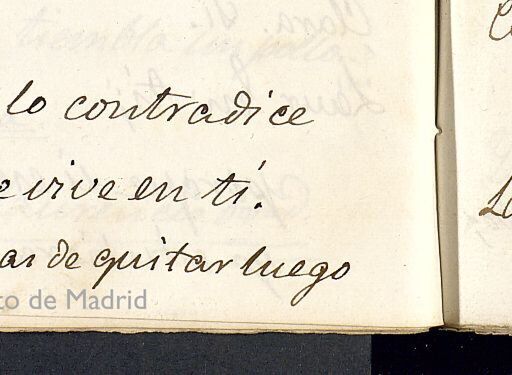 lo contradice
e vive en ti.
as de quitar luego
to de Madrid